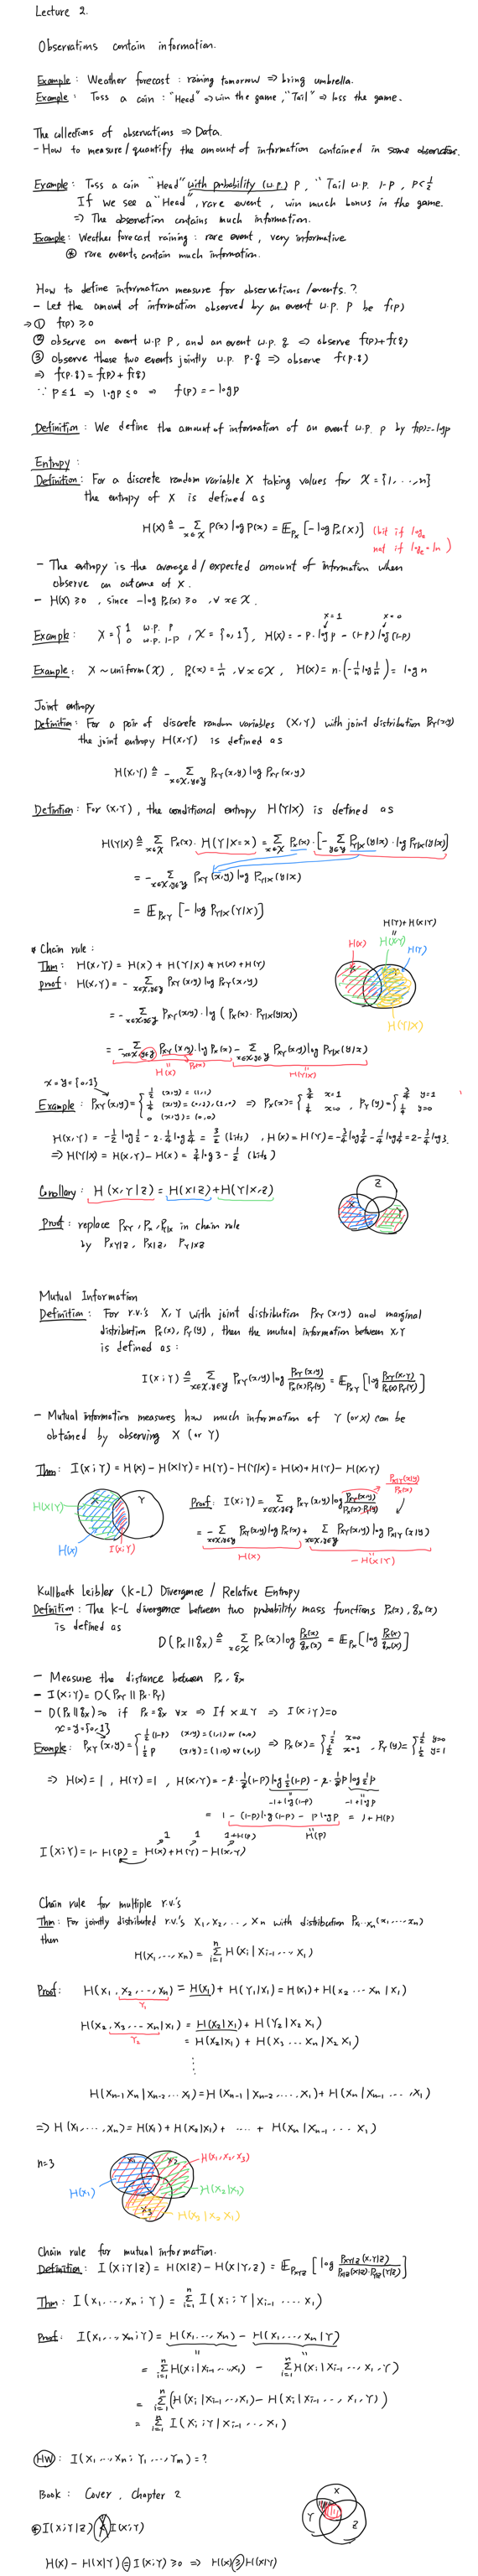 Lecture 2.
Observations contain information.
Example : Weather forecast : raining tomorrow ⇒ bring umbrella.
Example : Toss a coin : "Head" ⇒ win the game, "Tail" ⇒ loss the game.
The collections of observations ⇒ Data.
- How to measure / quantify the amount of information contained in some observations.
Example : Toss a coin "Head" with probability (w.p.) P, "Tail w.p. 1-P, P<1/2
If we see a "Head", rare event, win much bonus in the game.
⇒ The observation contains much information.
Example : Weather forecast raining : rare event, very informative
⊛ rare events contain much information.
How to define information measure for observations / events ?
- Let the amount of information observed by an event w.p. P be f(P)
→ ① f(P) ≥ 0
② observe an event w.p. P, and an event w.p. q ⇔ observe f(P)+f(q)
③ observe these two events jointly w.p. P·q ⇒ observe f(P·q)
⇒ f(P·q) = f(P) + f(q)
∵ P ≤ 1 ⇒ log P ≤ 0 ⇒ f(P) = -log P
Definition : We define the amount of information of an event w.p. P by f(P)=-log P
Entropy :
Definition : For a discrete random variable X taking values for X = {1, ..., n}
the entropy of X is defined as
H(X) ≜ - Σ_{x∈X} P(x) log P(x) = E_{Px} [-log Px(X)] (bit if log₂
nat if logₑ = ln )
- The entropy is the averaged / expected amount of information when
observe an outcome of X.
- H(X) ≥ 0, since -log Px(x) ≥ 0, ∀ x ∈ X.
x=1 x=0
Example : X = { 1 w.p. P , 0 w.p. 1-P , X = {0,1}, H(X) = -P·log P - (1-P) log(1-P)
Example : X ~ uniform(X), Px(x) = 1/n, ∀x∈X, H(X) = n·(-1/n log 1/n) = log n
Joint entropy
Definition : For a pair of discrete random variables (X,Y) with joint distribution Pxy(x,y)
the joint entropy H(X,Y) is defined as
H(X,Y) ≜ - Σ_{x∈X,y∈Y} Pxy(x,y) log Pxy(x,y)
Definition : For (X,Y), the conditional entropy H(Y|X) is defined as
H(Y|X) ≜ Σ_{x∈X} Px(x)· H(Y|X=x) = Σ_{x∈X} Px(x)·[-Σ_{y∈Y} P_{Y|X}(y|x)·log P_{Y|X}(y|x)]
= - Σ_{x∈X,y∈Y} Pxy(x,y) log P_{Y|X}(y|x)
= E_{Pxy} [-log P_{Y|X}(Y|X)]
H(Y)+H(X|Y)
=
H(X) H(X,Y) H(Y)
H(Y|X)
* Chain rule :
Thm : H(X,Y) = H(X) + H(Y|X) ≠ H(X)+H(Y)
proof : H(X,Y) = - Σ_{x∈X,y∈Y} Pxy(x,y) log Pxy(x,y)
= - Σ_{x∈X,y∈Y} Pxy(x,y)·log ( Px(x)· P_{Y|X}(y|x))
= - Σ_{x∈X,y∈Y} Pxy(x,y)·log Px(x) - Σ_{x∈X,y∈Y} Pxy(x,y) log P_{Y|X}(y|x)
H(X) Px(x) H(Y|X)
X = Y = {0,1}
Example : Pxy(x,y) = { 1/2 (x,y) = (1,1) , 1/4 (x,y) = (0,1), (1,0) , 0 (x,y) = (0,0) ⇒ Px(x) = { 3/4 x=1 , 1/4 x=0 , Py(y) = { 3/4 y=1 , 1/4 y=0
H(X,Y) = -1/2 log 1/2 - 2·1/4 log 1/4 = 3/2 (bits), H(X) = H(Y) = -3/4 log 3/4 - 1/4 log 1/4 = 2 - 3/4 log 3.
⇒ H(Y|X) = H(X,Y) - H(X) = 3/4 log 3 - 1/2 (bits)
Corollary : H(X,Y|Z) = H(X|Z) + H(Y|X,Z)
X Y Z
Proof : replace Pxy, Px, P_{Y|X} in chain rule
by P_{XY|Z}, P_{X|Z}, P_{Y|XZ}
Mutual Information
Definition : For r.v.'s X, Y with joint distribution Pxy(x,y) and marginal
distribution Px(x), Py(y), then the mutual information between X,Y
is defined as :
I(X;Y) ≜ Σ_{x∈X,y∈Y} Pxy(x,y) log Pxy(x,y)/Px(x)Py(y) = E_{Pxy} [log Pxy(X,Y)/Px(X)Py(Y)]
- Mutual information measures how much information of Y (or X) can be
obtained by observing X (or Y)
Thm : I(X;Y) = H(X) - H(X|Y) = H(Y) - H(Y|X) = H(X) + H(Y) - H(X,Y)
X Y
H(X|Y)
H(X) I(X;Y)
P_{X|Y}(x|y)/Px(x)
Proof : I(X;Y) = Σ_{x∈X,y∈Y} Pxy(x,y) log Pxy(x,y)/Px(x)·Py(y)
= - Σ_{x∈X,y∈Y} Pxy(x,y) log Px(x) + Σ_{x∈X,y∈Y} Pxy(x,y) log P_{X|Y}(x|y)
H(X) -H(X|Y)
Kullback Leibler (K-L) Divergence / Relative Entropy
Definition : The K-L divergence between two probability mass functions Px(x), qx(x)
is defined as
D(Px||qx) ≜ Σ_{x∈X} Px(x) log Px(x)/qx(x) = E_{Px} [log Px(X)/qx(X)]
- Measure the distance between Px, qx
- I(X;Y) = D(Pxy || Px·Py)
- D(Px||qx)=0 if Px = qx ∀x ⇒ If X ⊥⊥ Y ⇒ I(X;Y)=0
X = Y = {0,1}
Example : Pxy(x,y) = { 1/2(1-P) (x,y) = (1,1) or (0,0) , 1/2 P (x,y) = (1,0) or (0,1) ⇒ Px(x) = { 1/2 x=0 , 1/2 x=1 , Py(y) = { 1/2 y=0 , 1/2 y=1
⇒ H(X) = 1, H(Y) = 1, H(X,Y) = -2·1/2(1-P) log 1/2(1-P) - 2·1/2 P log 1/2 P
-1+log(1-P) -1+log P
= 1 - (1-P)log(1-P) - P log P = 1 + H(P)
H(P)
1 1 1+H(P)
I(X;Y) = 1 - H(P) = H(X) + H(Y) - H(X,Y)
Chain rule for multiple r.v.'s
Thm : For jointly distributed r.v.'s X1, X2, ..., Xn with distribution P_{X1...Xn}(x1, ..., xn)
then
H(X1, ..., Xn) = Σ_{i=1}^{n} H(Xi | Xi-1, ..., X1)
Proof : H(X1, X2, ..., Xn) = H(X1) + H(Y1|X1) = H(X1) + H(X2 ... Xn | X1)
Y1
H(X2, X3, ... Xn | X1) = H(X2|X1) + H(Y2 | X2 X1)
Y2
= H(X2|X1) + H(X3 ... Xn | X2 X1)
⋮
H(Xn-1 Xn | Xn-2 ... X1) = H(Xn-1 | Xn-2, ..., X1) + H(Xn | Xn-1 ... , X1)
⇒ H(X1, ..., Xn) = H(X1) + H(X2|X1) + ..... + H(Xn | Xn-1 ... X1)
n=3
X1 X2 H(X1,X2,X3)
H(X1) H(X2|X1)
X3 H(X3|X2 X1)
Chain rule for mutual information.
Definition : I(X;Y|Z) = H(X|Z) - H(X|Y,Z) = E_{Pxyz} [ log P_{XY|Z}(X,Y|Z)/P_{X|Z}(X|Z)·P_{Y|Z}(Y|Z) ]
Thm : I(X1, ..., Xn ; Y) = Σ_{i=1}^{n} I(Xi ; Y | Xi-1 ... X1)
Proof : I(X1, ..., Xn ; Y) = H(X1, ..., Xn) - H(X1, ..., Xn | Y)
= Σ_{i=1}^{n} H(Xi | Xi-1, ..., X1) - Σ_{i=1}^{n} H(Xi | Xi-1, ..., X1, Y)
= Σ_{i=1}^{n} (H(Xi | Xi-1, ..., X1) - H(Xi | Xi-1, ..., X1, Y))
= Σ_{i=1}^{n} I(Xi ; Y | Xi-1, ..., X1)
HW : I(X1, ..., Xn ; Y1, ..., Ym) = ?
Book : Cover, Chapter 2
X
Y Z
⊛ I(X;Y|Z) I(X;Y)
H(X) - H(X|Y) = I(X;Y) ≥ 0 ⇒ H(X) ≥ H(X|Y)